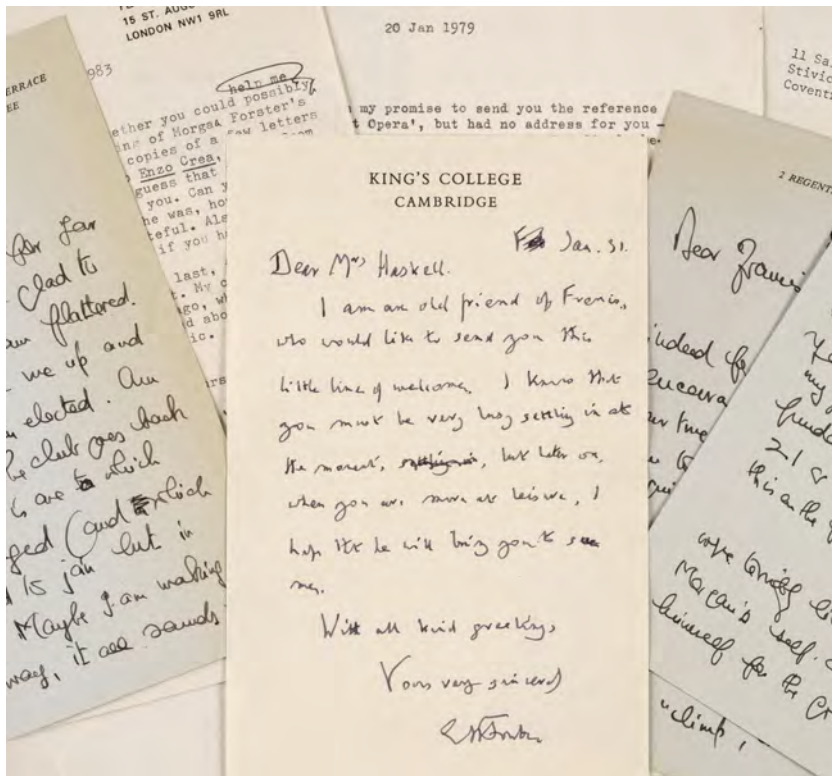 15 ST. AUGU
LONDON NW1 9RL
983
help me
ether you could possibly
ing of Morgan Forster's
copies of a few letters
Enzo Crea,
guess that
you. Can y
he was, ho
teful. Als
if you h
last,
t. My o
ago, w
d abo
ic.
20 Jan 1979
my promise to send you the reference
t Opera', but had no address for you -
11 Sa
Stivic
Covent
ERRACE
EE
for far
Clad to
flattered.
me up and
elected. Am
he club goes back
are to which
ged (and which
15 jan but in
Maybe I am waking
way, it all sounds
KING'S COLLEGE
CAMBRIDGE
Jan. 31.
Dear Mrs Haskell.
I am an old friend of Francis,
who would like to send you this
little line of welcome. I know that
you must be very busy settling in at
the moment, settling in, but later on,
when you are more at leisure, I
hope that he will bring you to see
me.
With all kind greetings
Yours very sincerely
EMForster
2 REGENT
Dear Francis
indeed fo
my
21
this on the
himself for the
climb,